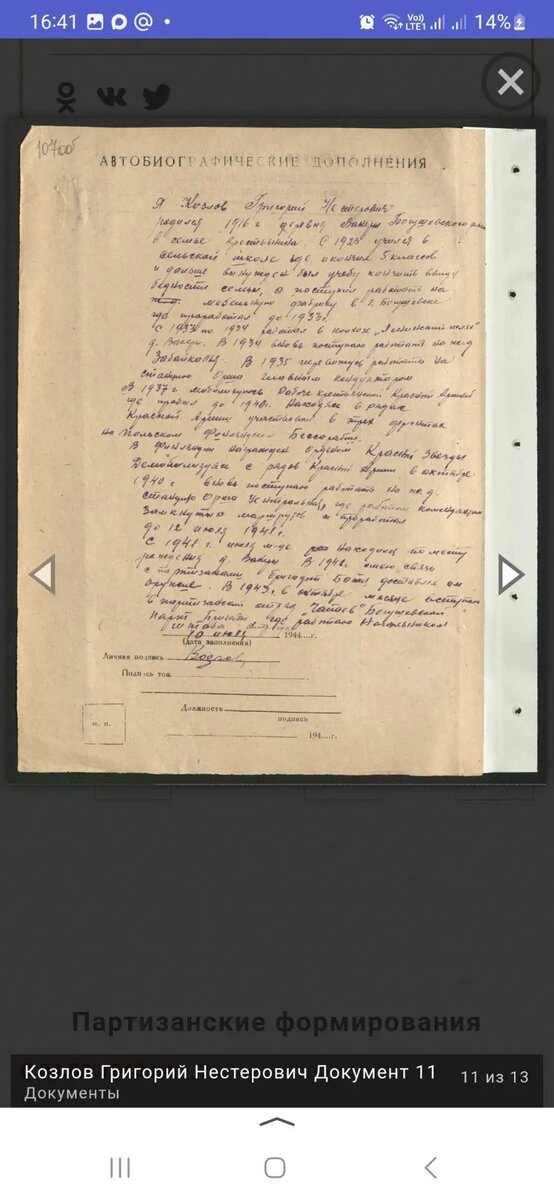 16:41
Vo))
LTE1
14%
1070об
АВТОБИОГРАФИЧЕСКИЕ ДОПОЛНЕНИЯ
Я Козлов Григорий Нестерович
родился 1916 г деревня Вакары Богушевского
в семье крестьянина. С 1925 учился в
сельской школе где окончил 5 классов
и дальше вынужден был учебу кончить ввиду
бедности семьи, а поступил работать на
мебельную фабрику в г. Богушевске
где проработал до 1933г.
С 1933 по 1934 работал в колхозе
д. Вакары. В 1934 вновь поступаю работать на ж.д.
Забайкалья. В 1935 перевожусь работать на
станцию Орша главным кондуктором
В 1937 г мобилизуюсь Рабоче крестьянской Красной Армией
где пробыл до 1940г. Находясь в рядах
Красной Армии участвовал в трех фронтах
на Польском Финляндском Бессарабие.
В Финляндии награжден орденом Красной Звезды
Демобилизуясь с рядов Красной Армии в октябре
1940 г вновь поступаю работать на ж.д.
станцию Орша Центральная, где работал
маршрутов и проработал
до 12 июля 1941г.
С 1941 г. июля м-ца находился по месту
рождения д. Вакары В 1942 имею связь
с партизанами бригады доставлял им
оружие. В 1943г. в октябре месяце вступаю
в партизанский отряд "Чапаев" Богушевской
парт. Бригады где работаю Начальником
штаба отряда
10 июля 1944....г.
(дата заполнения)
Личная подпись Козлов
Подпись тов.
Должность
подпись
м. п.
194....г.
Партизанские формирования
Козлов Григорий Нестерович Документ 11
11 из 13
Документы